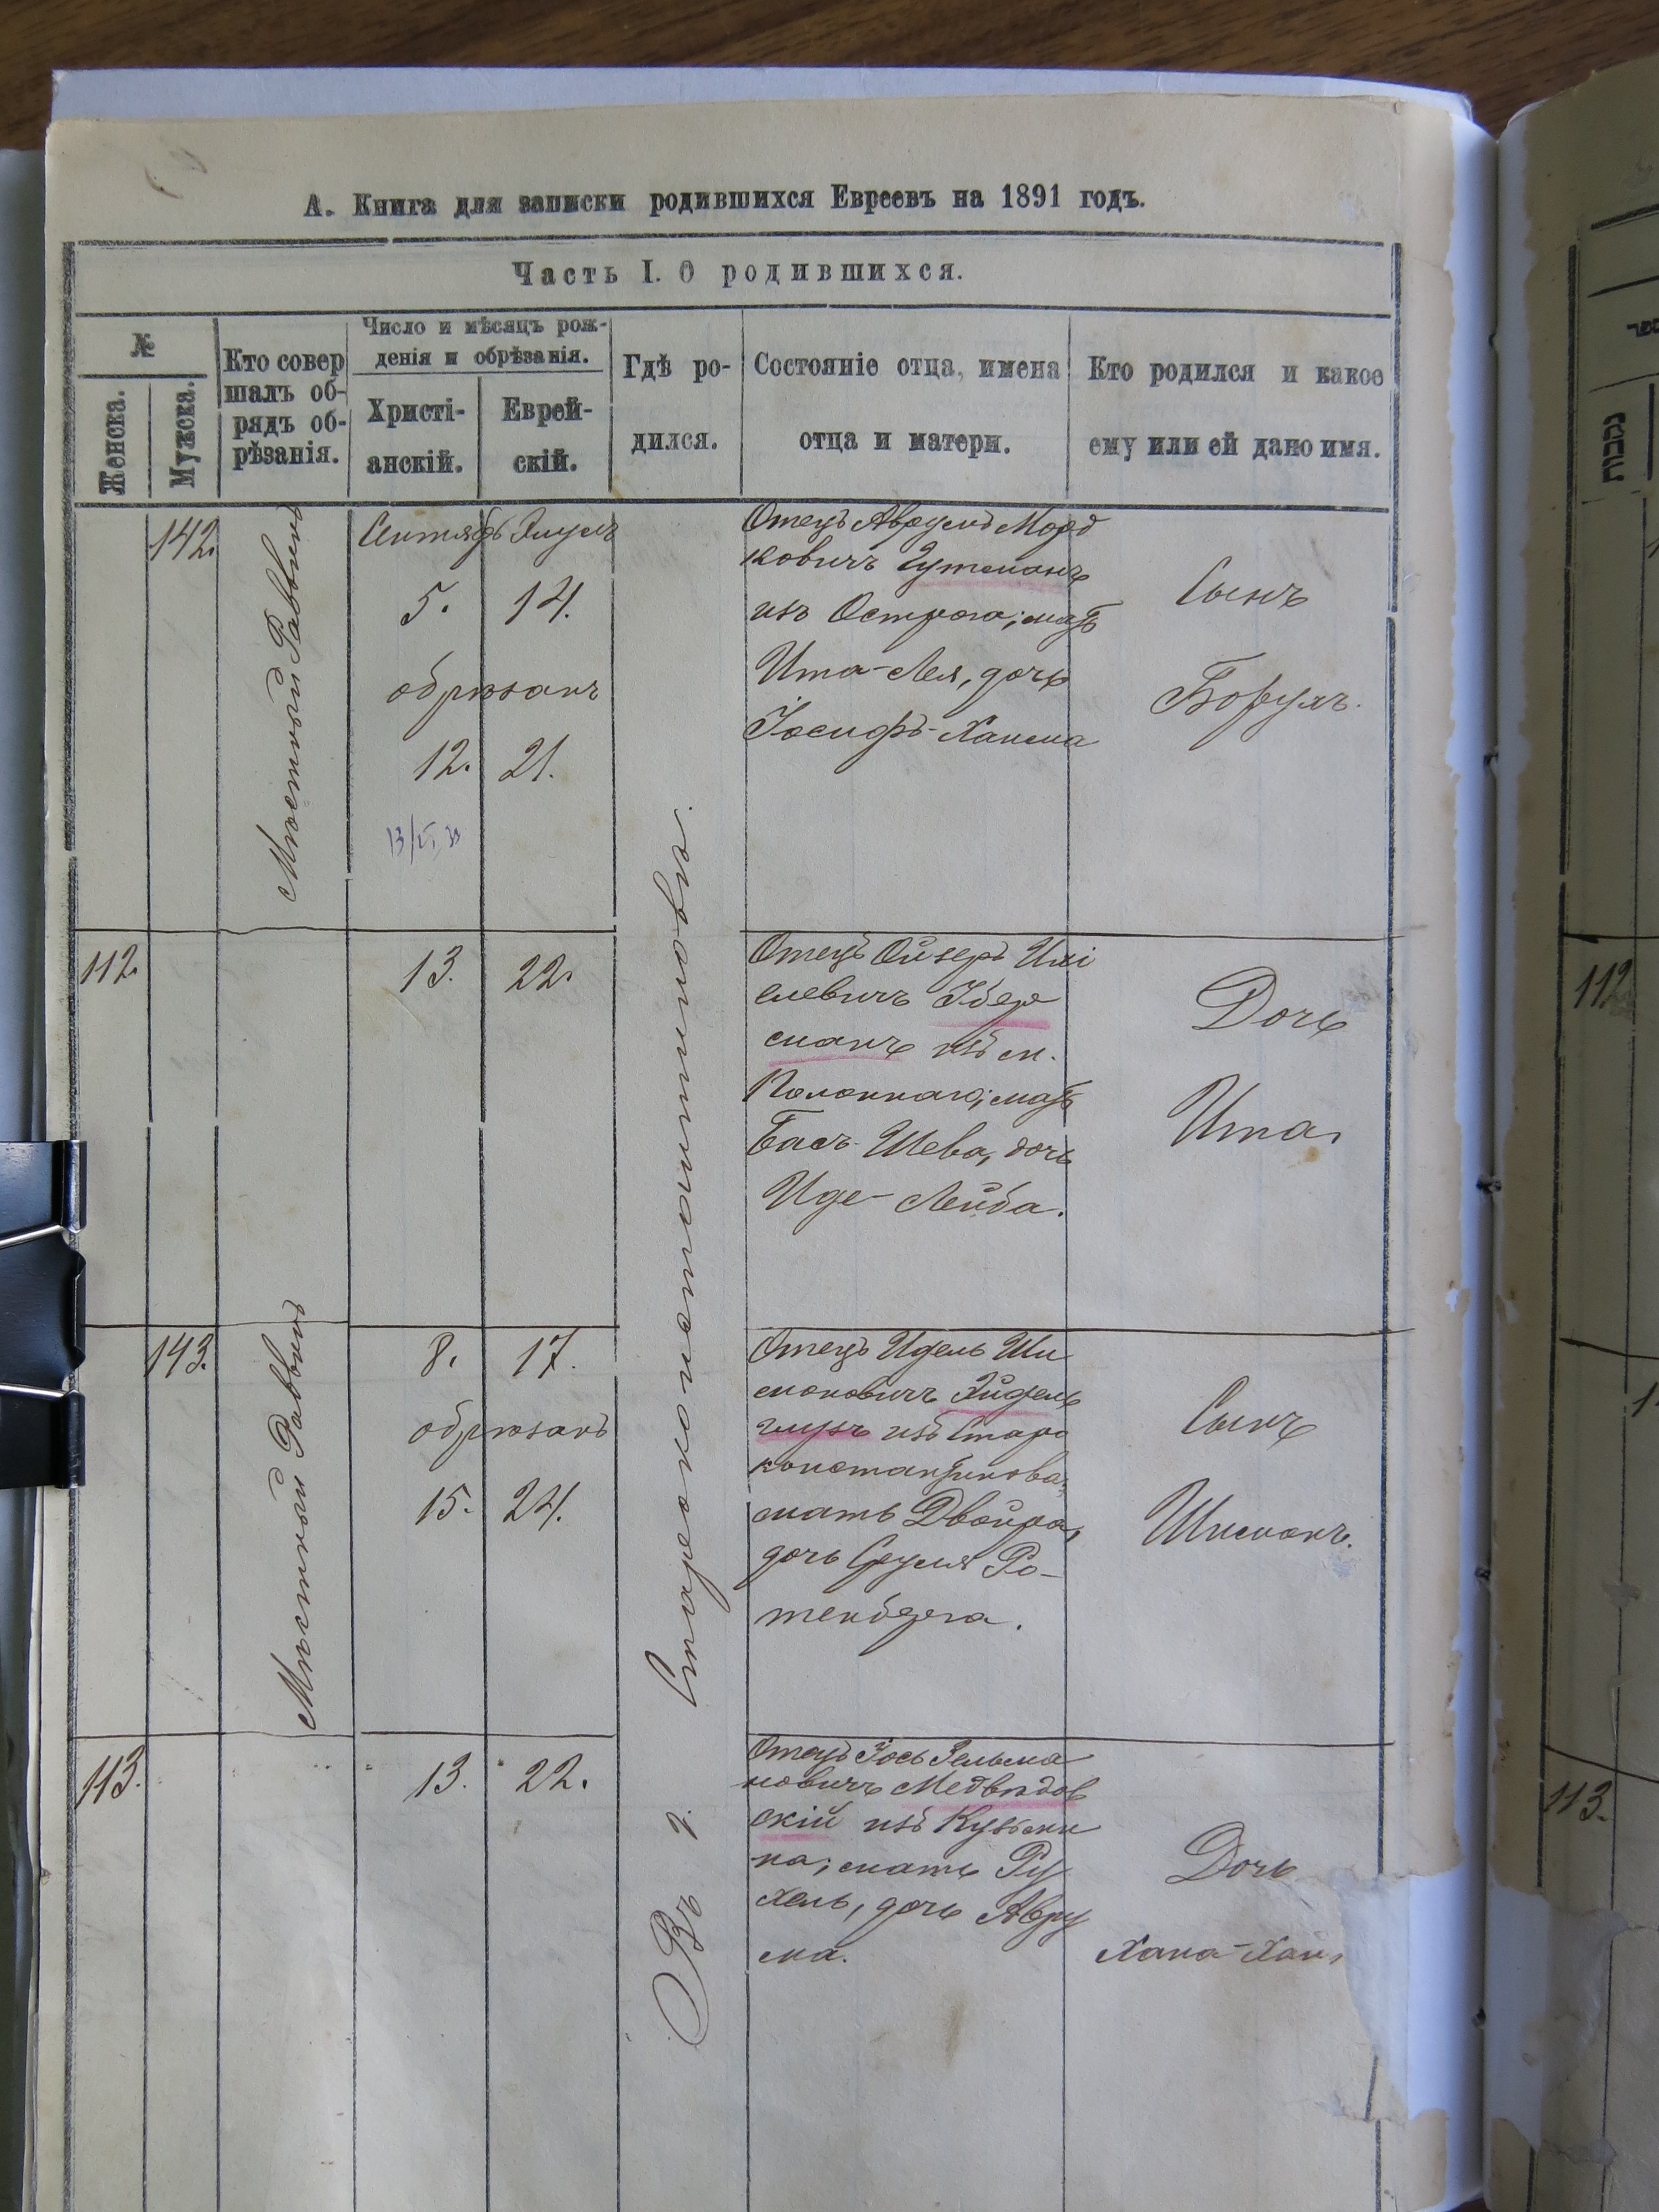 А. Книга для записки родившихся Евреевъ на 1891 годъ.
Часть I. О родившихся.
№
Женска.
Мужска.
Кто совер
шалъ об-
рядъ об-
рѣзанія.
Число и мѣсяцъ рож-
денія и обрѣзанія.
Христі-
анскій.
Еврей-
скій.
Гдѣ ро-
дился.
Состояніе отца, имена
отца и матери.
Кто родился и какое
ему или ей дано имя.
142.
Мѣстный Раввинъ
Сентябрь Элулъ
5. 14.
обрѣзанъ
12. 21.
Въ г. Староконстантиновѣ.
Отецъ Аврумъ Морд
ковичъ Гутманъ
изъ Острога; мать
Ита-Лея, дочь
Іосифъ-Хаима
Сынъ
Борухъ.
112.
13. 22.
Отецъ Ойзеръ Ихі
елевичъ
манъ изъ м.
Полоннаго; мать
Бася-Шева, дочь
Иде-Лейба.
Дочь
Ита.
143.
Мѣстный Раввинъ
8. 17.
обрѣзанъ
15. 24.
Отецъ Идель Ши
моновичъ Эйдель
изъ Старо
константинова;
мать Двойра,
дочь Сруля Ро-
тенберга.
Сынъ
Шимонъ.
113.
13. 22.
Отецъ Іось Зельма
новичъ Медвѣдов
скій изъ Кузьми
на; мать Ру
хель, дочь Авру
ма.
Дочь
Хана-
נקבות
112
113.